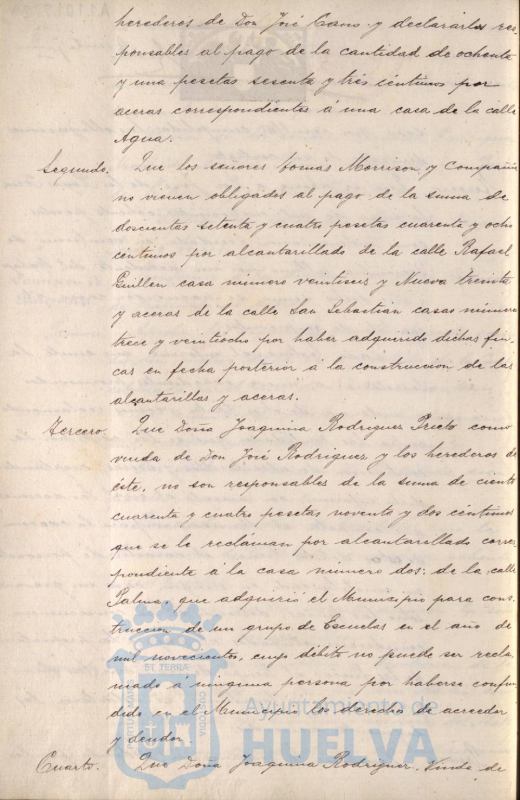 herederos de Don José Cano y declararles res-
ponsables al pago de la cantidad de ochenta
y una pesetas sesenta y tres céntimos por
aceras correspondientes á una casa de la calle
Agua.
Segundo. Que los señores Tomás Morrison y Compañia
no vienen obligados al pago de la suma de
doscientas setenta y cuatro pesetas cuarenta y ocho
céntimos por alcantarillado de la calle Rafael
Guillen casa número veintiseis y Nueva treinta
y aceras de la calle San Sebastian casas número
trece y veintiocho por haber adquirido dichas fin-
cas en fecha posterior á la construccion de las
alcantarillas y aceras.
Tercero. Que Doña Joaquina Rodriguez Prieto como
viuda de Don José Rodriguez y los herederos de
éste, no son responsables de la suma de ciento
cuarenta y cuatro pesetas noventa y dos céntimos
que se le reclaman por alcantarillado corres-
pondiente á la casa número dos de la calle
Palma, que adquirió el Municipio para cons-
truccion de un grupo de Escuelas en el año de
mil novecientos, cuyo débito no puede ser recla-
mado á ninguna persona por haberse confun-
dido en el Municipio los derechos de acreedor
y deudor.
Cuarto. Que Doña Joaquina Rodriguez, Viuda de
ET TERRA
CUSTODIA
Ayuntamiento de
HUELVA